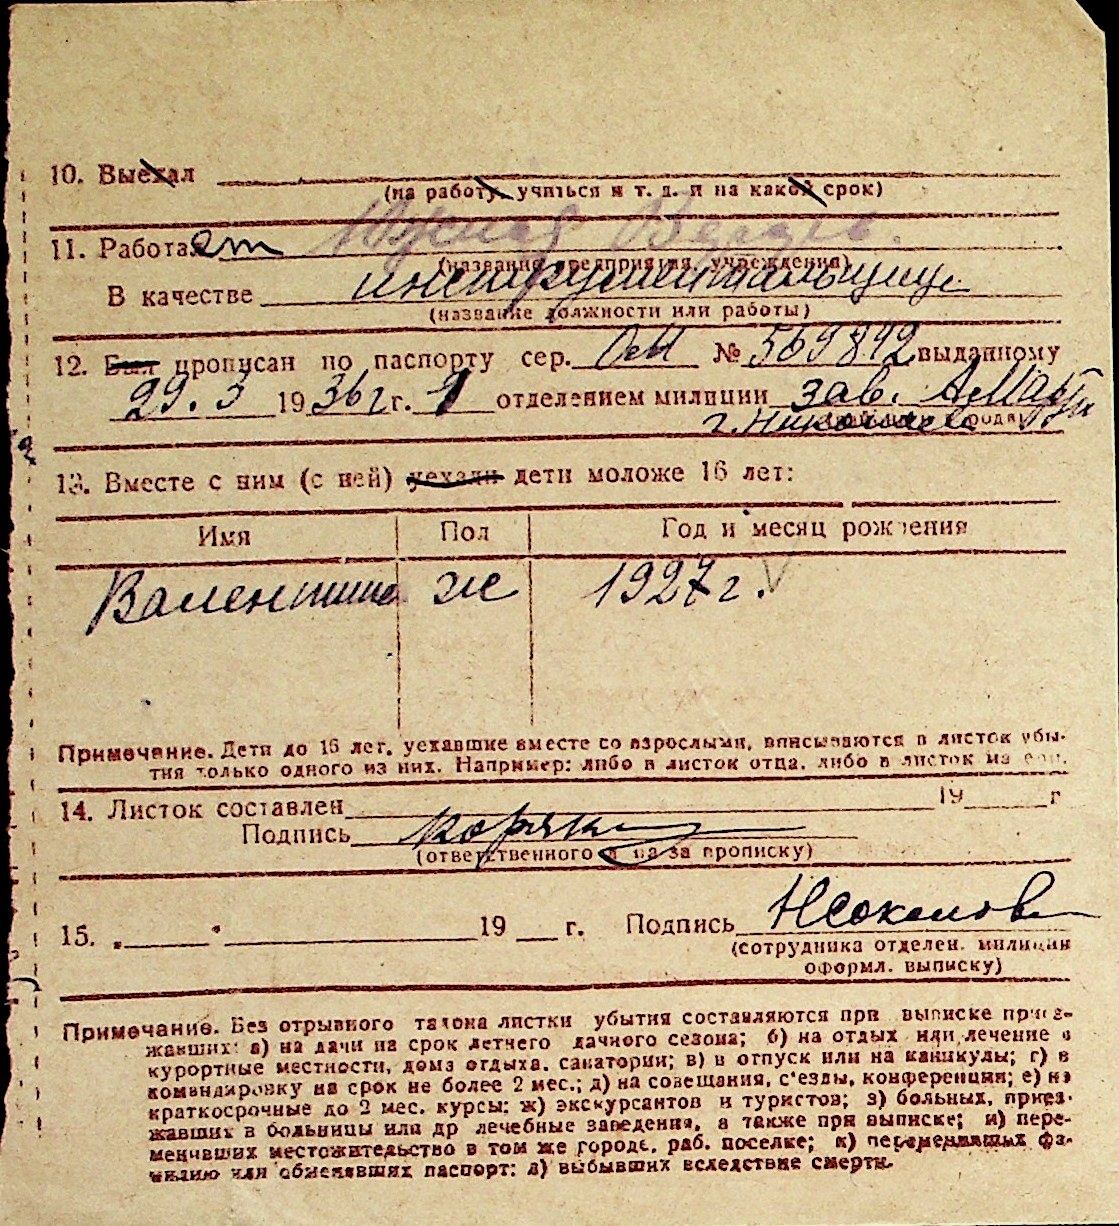 10. Выехал
(на работу, учиться и т. д. и на какой срок)
11. Работает Южная Верфь.
(название предприятия, учреждения)
В качестве инструментальщица
(название должности или работы)
12. Был прописан по паспорту сер. № 569842 выданному
29. 3 1936 г. г. 1 отделением милиции зав. А. Марти
г. Николаева
13. Вместе с ним (с ней) уехали дети моложе 16 лет:
Имя Пол Год и месяц рождения
Валентина ж 1927 г.
Примечание. Дети до 16 лет, уехавшие вместе со взрослыми, вписываются в листок убы-
тия только одного из них. Например: либо в листок отца, либо в листок матери.
14. Листок составлен 19 г
Подпись
(ответственного лица за прописку)
15. „ " 19 г. Подпись Н Соколов
(сотрудника отделен. милиции
оформл. выписку)
Примечание. Без отрывного талона листки убытия составляются при выписке приез-
жавших: а) на дачи на срок летнего дачного сезона; б) на отдых или лечение в
курортные местности, дома отдыха, санатории; в) в отпуск или на каникулы; г) в
командировку на срок не более 2 мес.; д) на совещания, с'езды, конференции; е) на
краткосрочные до 2 мес. курсы; ж) экскурсантов и туристов; з) больных, приез-
жавших в больницы или др лечебные заведения, а также при выписке; и) пере-
менивших местожительство в том же городе, раб. поселке; к) переменивших фа-
милию или обменявших паспорт; л) выбывших вследствие смерти.